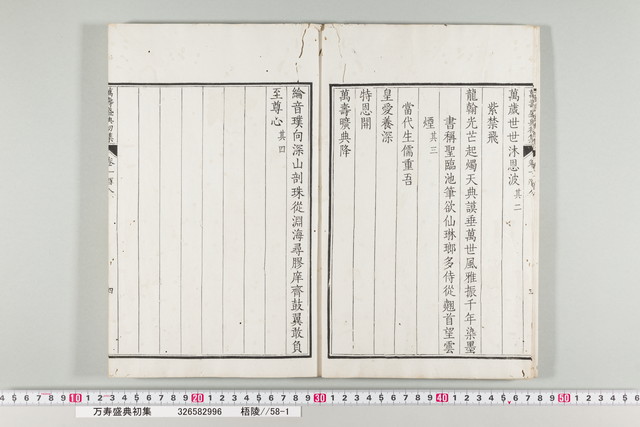 萬歲世世沐恩波其二
紫禁飛
龍翰光芒起燭天典謨垂萬世風雅振千年染墨
書稱聖臨池筆欲仙琳瑯多侍從翹首望雲
煙其三
當代生儒重吾
皇愛養深
特恩開
萬壽曠典降
綸音璞向深山剖珠從淵海尋膠庠齊鼓翼敢負
至尊心其四
萬壽盛典初集
卷一百八
四
万寿盛典初集 326582996 梧陵//58-1